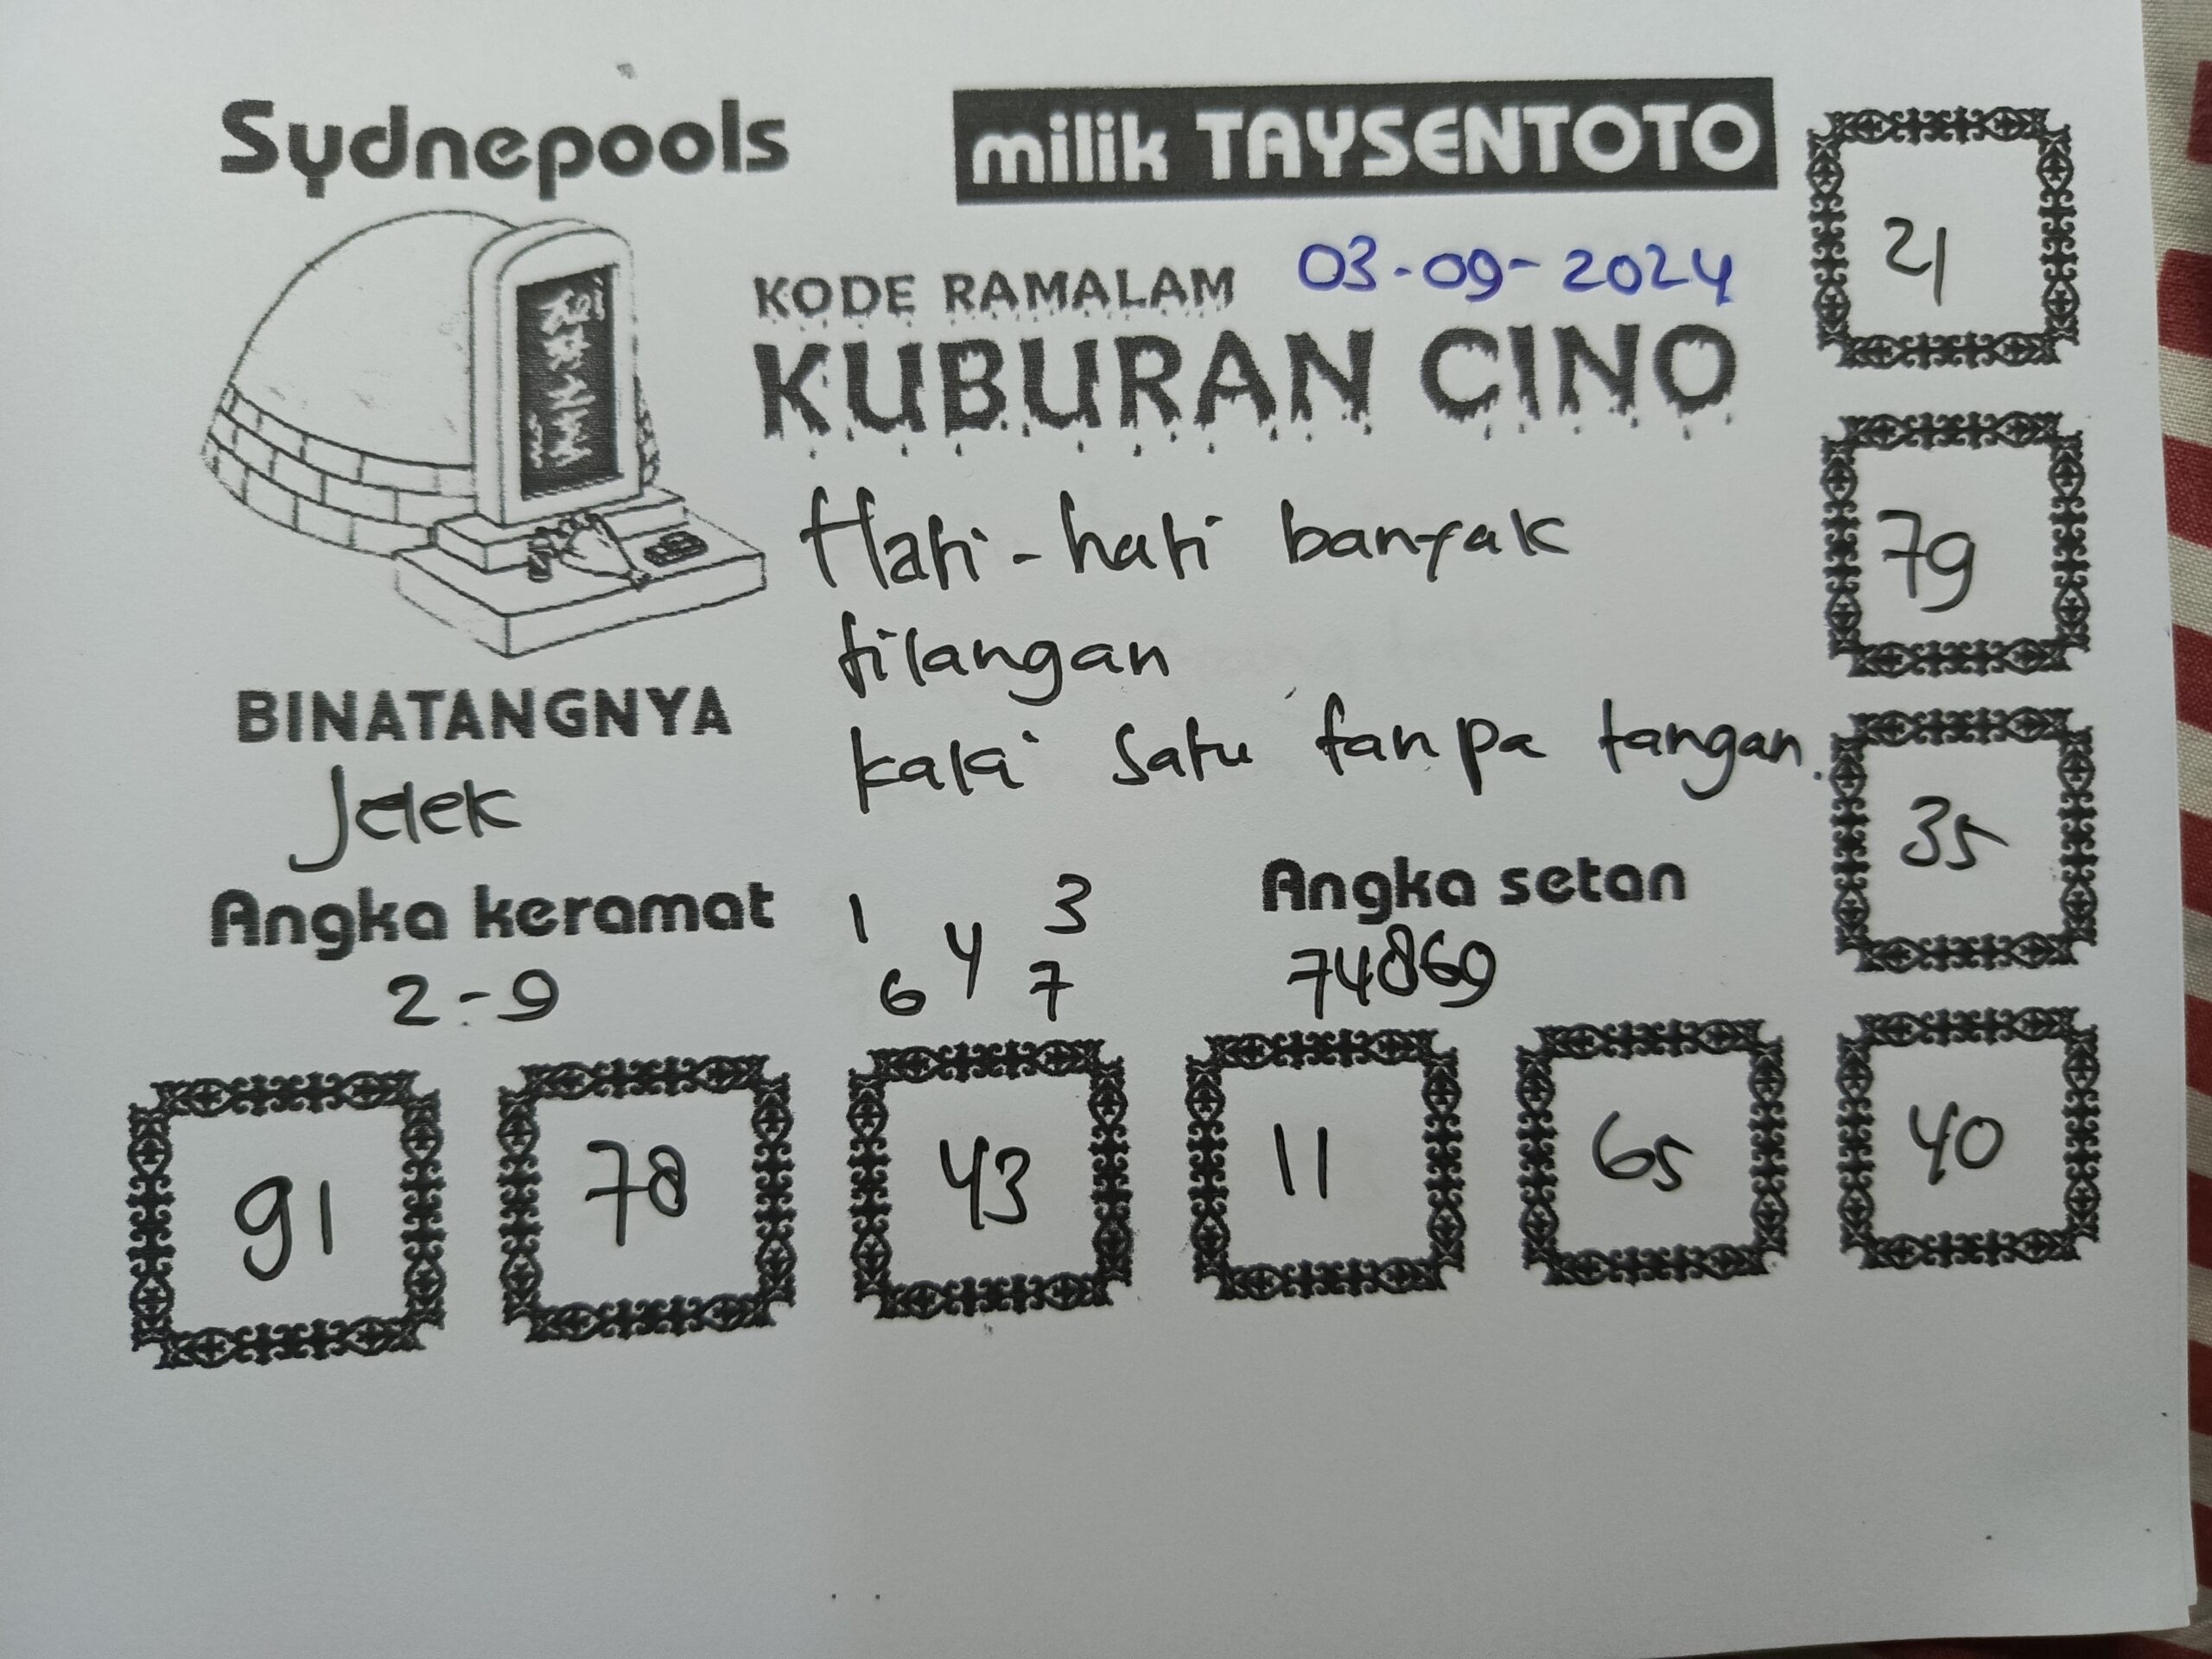 Sydnepools
milik TAYSENTOTO
KODE RAMALAM
03-09-2024
KUBURAN CINO
Hati-hati banyak
tilangan
satu tanpa tangan.
BINATANGNYA
Jelek
Angka keramat
2-9
1 3
4
6 7
Angka setan
74869
21
79
35
91
78
43
11
65
40